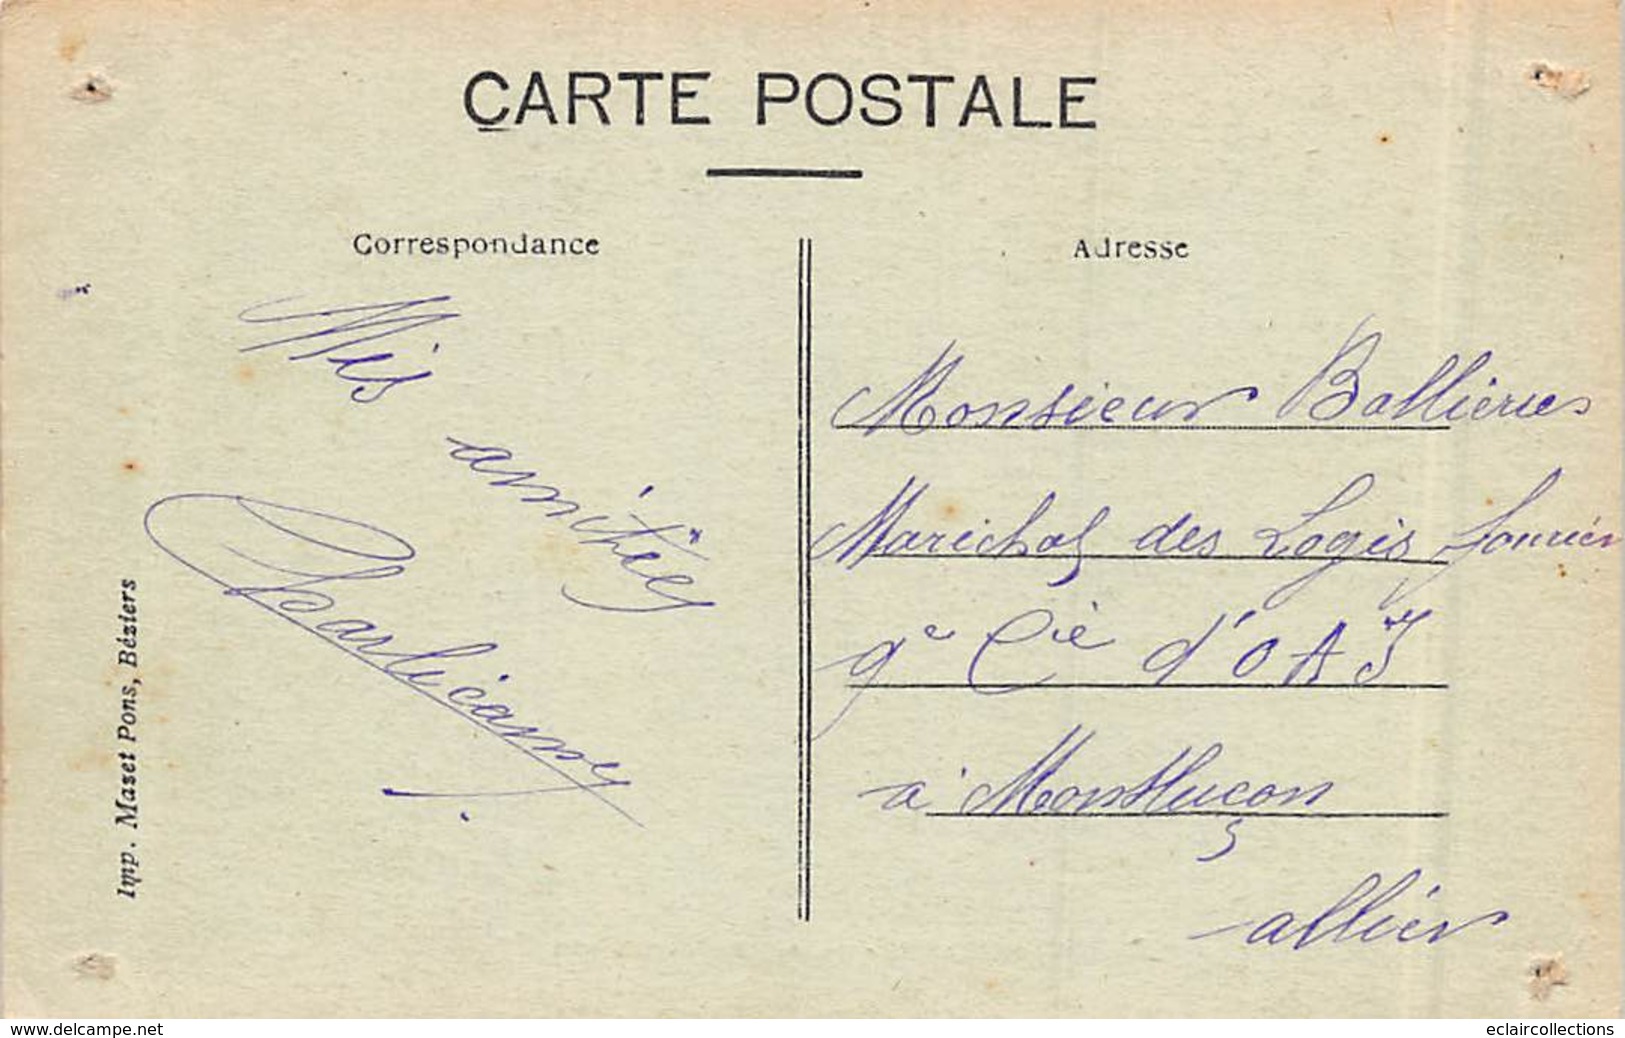 CARTE POSTALE
Correspondance
Mes
amitiés
Adresse
Monsieur Ballières
Marechal des Logis fourrier
9e Cie d'OA
à Montluçon
allier
Imp. Mazet Pons, Béziers
www.delcampe.net
eclaircollections